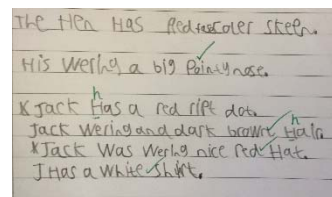 The Hen Has Red coler skeen.
His wering a big Pointy nose.
Jack Has a red ript dot.
h
Jack wering and dark brown Hair.
h
Jack was wering nice red Hat.
J Has a white shirt.